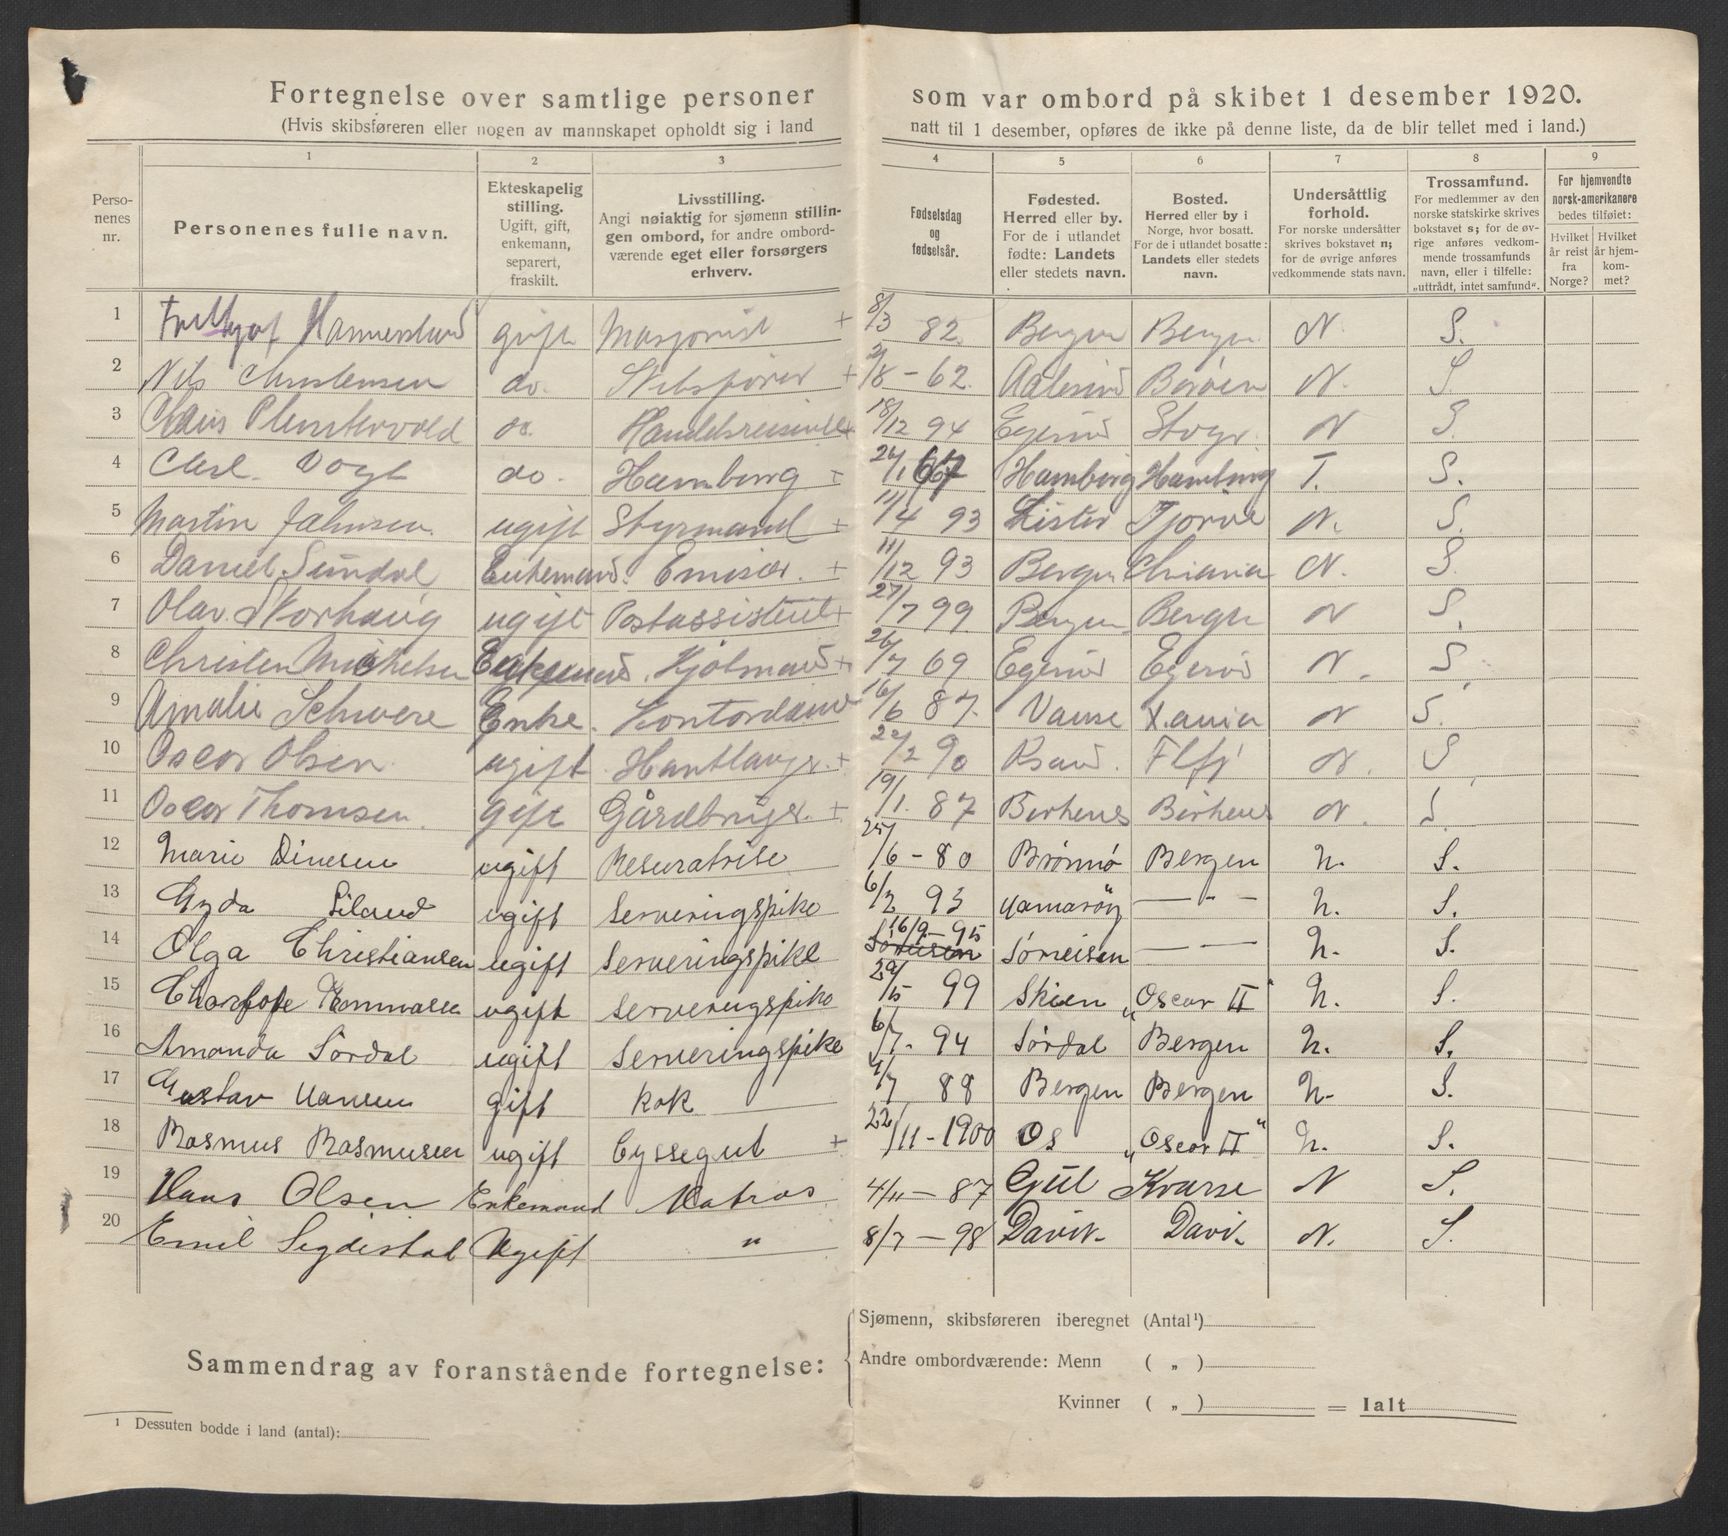 Fortegnelse over samtlige personer som var ombord på skibet 1 desember 1920.
(Hvis skibsføreren eller nogen av mannskapet opholdt sig i land natt til 1 desember, opføres de ikke på denne liste, da de blir tellet med i land.)
1 2 3 4 5 6 7 8 9
Personenes nr.
Personenes fulle navn.
Ekteskapelig stilling. Ugift, gift, enkemann, separert, fraskilt.
Livsstilling. Angi nøiaktig for sjømenn stillingen ombord, for andre ombordværende eget eller forsørgers erhverv.
Fødselsdag og fødselsår.
Fødested. Herred eller by. For de i utlandet fødte: Landets eller stedets navn.
Bosted. Herred eller by i Norge, hvor bosatt. For de i utlandet bosatte: Landets eller stedets navn.
Undersåttlig forhold. For norske undersåtter skrives bokstavet n; for de øvrige anføres vedkommende stats navn.
Trossamfund. For medlemmer av den norske statskirke skrives bokstavet s; for de øvrige anføres vedkommende trossamfunds navn, eller i tilfelle: „uttrådt, intet samfund".
For hjemvendte norsk-amerikanere bedes tilføiet: Hvilket år reist fra Norge? Hvilket år hjemkommet?
1 gift Masjonist + 8/3 82. Bergen Bergen N. S.
2 Nils Christensen do. + 2/8 - 62. Aalesund N. S.
3 do. Handelsreisende + 18/12 94 Egersund N S.
4 Carl Vogt do. Hamburg + Hamborg Hamburg T. S.
5 Martin Jahnsen. ugift Styrmand + 11/4 93 Lister N. S.
6 Daniel Sundal Enkemand. Emisær. + 11/12 93 Bergen N. S.
7 Olav Storhaug ugift Postassistent + 27/7 99 Bergen Bergen N S.
8 Christen Michelsen Enkemand. + 26/7 69 Egersund N. S.
9 Amalie Schwere Enke. Kontordame 16/6 87. Vanse X.ania N S.
10 Oscar Olsen ugift + 90 N. S
11 Oscar Thomsen. gift Gårdbruger. + 19/1. 87 Birkenes Birkenes N. S.
12 Marie Dinesen ugift 25/6 - 80 Brønnø Bergen N. S.
13 Gyda Siland ugift Serveringspike 6/2 93 — " — N. S.
14 Olga Christiansen ugift Serveringspike 16/9 - 95 Sørreisen — — N. S.
15 ugift Serveringspike 29/5 99 Skien „Oscar II" N. S.
16 Amanda Sørdal ugift Serveringspike 6/7. 94 Sørdal Bergen N. S.
17 Gustav Hansen gift Kok 4/7 88 Bergen Bergen N. S.
18 Rasmus Rasmusen ugift Byssegut + 22/11 - 1900 Os „Oscar II" N. S.
19 Hans Olsen Enkemand Matros 4/11 - 87 Kvarse N S.
20 Emil Ugift " 8/7 - 98 Davik Davik N. S.
Sammendrag av foranstående fortegnelse:
Sjømenn, skibsføreren iberegnet (Antal ¹)
Andre ombordværende: Menn ( „ )
Kvinner ( „ ) = Ialt
¹ Dessuten bodde i land (antal):